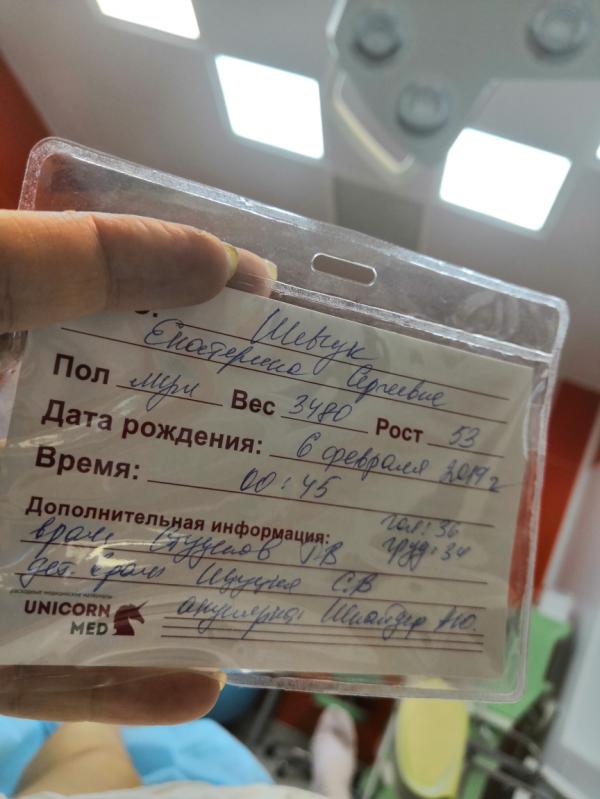 Шевчук
Екатерина Сергеевна
Пол муж Вес 3480 Рост 53
Дата рождения: 6 февраля 2019 г
Время: 00:45
Дополнительная информация: гол: 36
груд: 34
врач Г.В
дет. врач С.В
расходные медицинские материалы
UNICORN акушерка: Шнайдер А.Ю.
MED